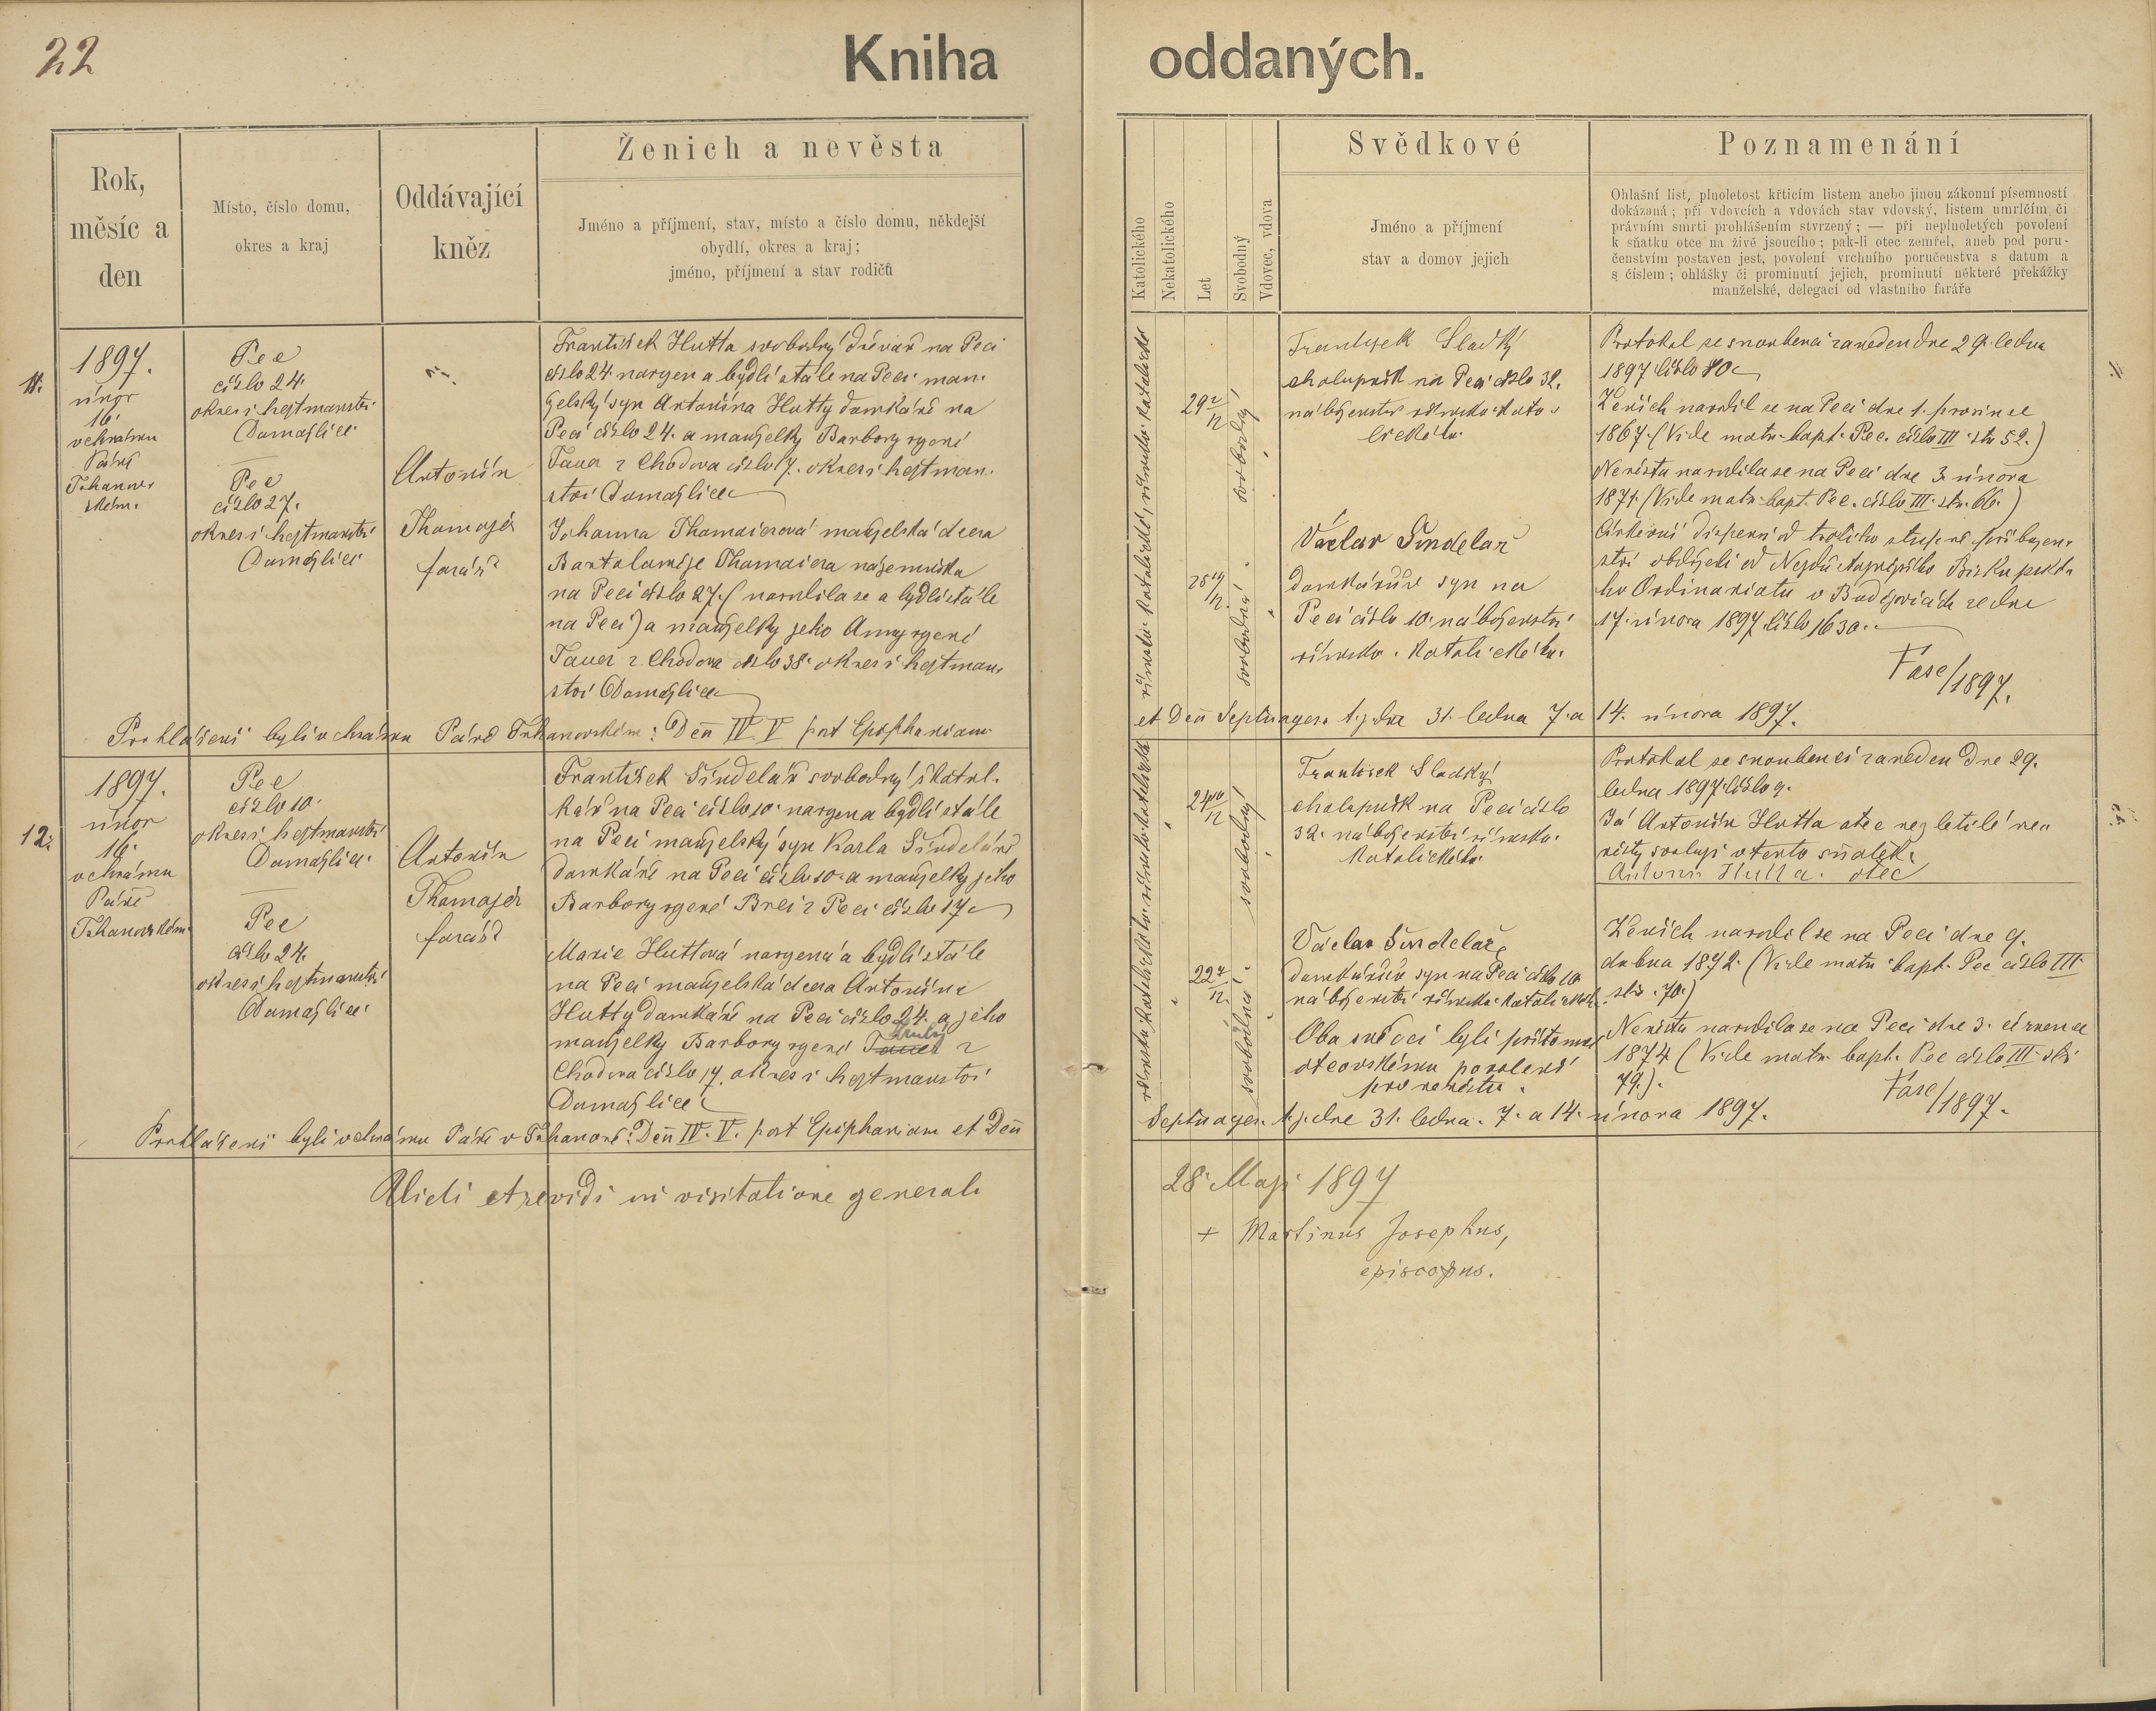 22
Kniha oddaných.
Rok,
měsíc a
den
Místo, číslo domu,
okres a kraj
Oddávající
kněz
Ženich a nevěsta
Jméno a příjmení, stav, místo a číslo domu, někdejší
obydlí, okres a kraj;
jméno, příjmení a stav rodičů
Katolického
Nekatolického
Let
Svobodný
Vdovec, vdova
Svědkové
Jméno a příjmení
stav a domov jejich
Poznamenání
Ohlašní list, plnoletost křticím listem anebo jinou zákonní písemností
dokázaná; při vdovcích a vdovách stav vdovský, listem umrlčím či
právním smrti prohlášením stvrzený; — při neplnoletých povolení
k sňatku otce na živě jsoucího; pak-li otec zemřel, aneb pod poru-
čenstvím postaven jest, povolení vrchního poručenstva s datum a
s číslem; ohlášky či prominutí jejich, prominutí některé překážky
manželské, delegací od vlastního faráře
11.
1897.
únor
16.
v chrámu
Páně
Tohanov
ském.
Pec
číslo 24.
okres i hejtmanství
Domažlice
Pec
číslo 27.
okres i hejtmanství
Domažlice
Antonín
Thomajer
farář
František Hutta svobodný drvař na Peci
číslo 24. narozen a bydlí stále na Peci man-
želský syn Antonína Hutty domkáře na
Peci číslo 24. a manželky Barbory rozené
Tauer z Chodova číslo 17. okres i hejtman-
ství Domažlice
Johanna Thomaierová manželská dcera
Bartoloměje Thomaiera nájemníka
na Peci číslo 27. (narodila se a bydlí stále
na Peci) a manželky jeho Anny rozené
Tauer z Chodova číslo 38. okres i hejtman-
ství Domažlice
29 2/12
svobodný
25 14/12
svobodná
František Sladký
chalupník na Peci číslo 32.
náboženství římsko-kato-
lického.
Václav Šindelář
domkářův syn na
Peci číslo 10. náboženství
římsko-katolického.
Protokol se snoubenci zaveden dne 29. ledna
1897 číslo 10
Ženich narodil se na Peci dne 1. prosince
1867. (Vide matr. bapt. Pec. číslo III. str 52.)
Nevěsta narodila se na Peci dne 3. února
1871. (Vide matr. bapt. Pec. číslo III. str. 66.)
Církevní dispensí od třetího stupně příbuzen-
ství obdrželi od Nejdůstojnějšího Biskupské-
ho Ordinariatu v Budějovicích ze dne
17. února 1897 číslo 1630.
Fasc/1897.
Prohlášení byli v chrámu Páně Tohanovském: Don IV. V post Epiphaniam
et Don Septuages. t. j. dne 31. ledna 7. a 14. února 1897.
12.
1897.
únor
16.
v chrámu
Páně
Tohanovském.
Pec
číslo 10.
okres i hejtmanství
Domažlice.
Pec
číslo 24.
okres i hejtmanství
Domažlice.
Antonín
Thomajer
farář
František Šindelář svobodný
kář na Peci číslo 10. narozen a bydlí stále
na Peci manželský syn Karla Šindeláře
domkáře na Peci číslo 10. a manželky jeho
Barbory rozené z Peci číslo 17
Marie Huttová narozená a bydlí stále
na Peci manželská dcera Antonína
Hutty domkáře na Peci číslo 24. a jeho
manželky Barbory rozené Tauer z
Chodova číslo 17. okres i hejtmanství
Domažlice
24 10/12
svobodný
22 7/12
svobodná
František Sladký
chalupník na Peci číslo
32. náboženství římsko-
katolického.
Václav Šindelář
domkářův syn na Peci číslo 10
náboženství římsko-katolického.
Oba svědci byli přítomni
otcovskému povolení
pro nevěstu.
Protokol se snoubenci zaveden dne 29.
ledna 1897. číslo 9.
Já Antonín Hutta otec nezletilé ne-
věsty svoluji v tento sňatek.
Antonín Hutta. otec
Ženich narodil se na Peci dne 9.
dubna 1872. (Vide matr. bapt. Pec číslo III.
str. 70.)
Nevěsta narodila se na Peci dne 3. července
1874 (Vide matr. bapt. Pec číslo III. str
79.).
Fasc/1897.
Prohlášeni byli v chrámu Páně v Tohanově: Don IV. V. post Epiphaniam et Don
Septuages. t. j. dne 31. ledna. 7. a 14. února 1897.
Vidi et revidi in visitatione generali
28. Maji 1897
+ Martinus Josephus,
episcopus.